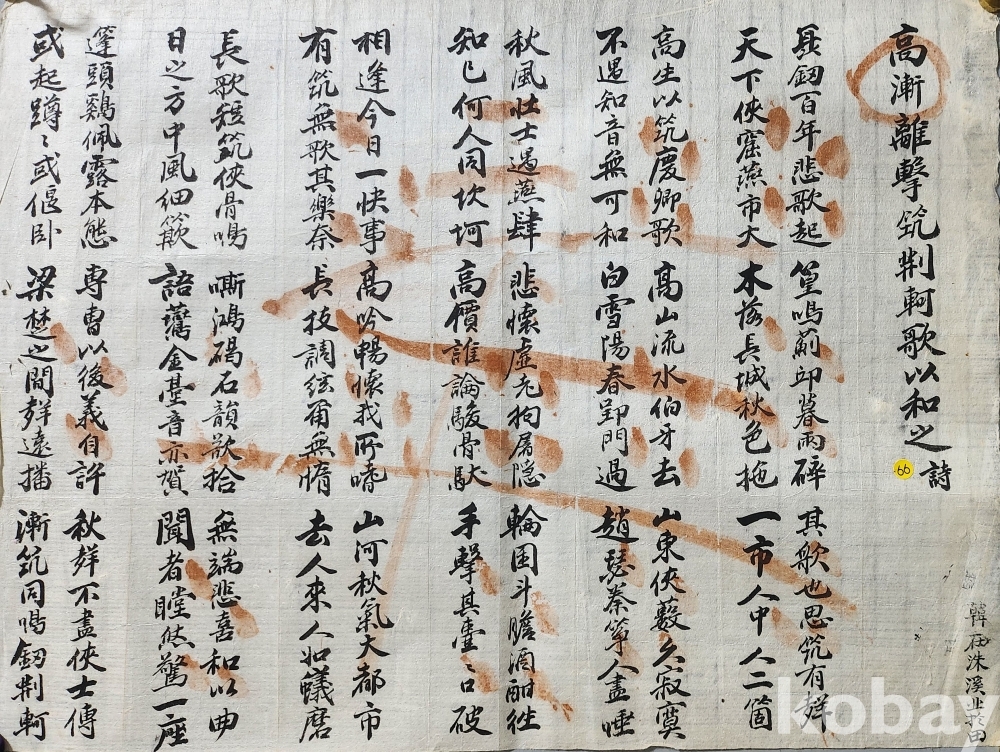 高漸離擊筑荊軻歌以和之 詩
66
聶釼百年悲歌起 篁鳴薊邱暮雨碎 其歌也思筑有聲
天下俠窟燕市大 木落長城秋色拖 一市人中人二箇
高生以筑慶卿歌 高山流水伯牙去 山東俠藪久寂寞
不遇知音無可和 白雪陽春郢門過 趙瑟秦箏人盡唾
秋風壯士過燕肆 悲懷虛老狗屠隱 輪囷斗膽酒酣徃
知已何人同坎坷 高價誰論駿骨馱 手擊其壺〻口破
相逢今日一快事 高吟暢懷我所嗜 山河秋氣大都市
有筑無歌其樂奈 長技調絃爾無惰 去人來人如蟻磨
長歌短筑俠骨鳴 嘶鴻碣石韻欲拾 無端悲喜和以曲
日之方中風細 語鶯金臺音亦賀 聞者瞠然驚一座
蓬頭鷄佩露本態 專曺以後義自許 秋聲不盡俠士傳
或起蹲〻或偃卧 梁楚之間聲遠播 漸筑同鳴釼荊軻
韓石洙溪
kobay